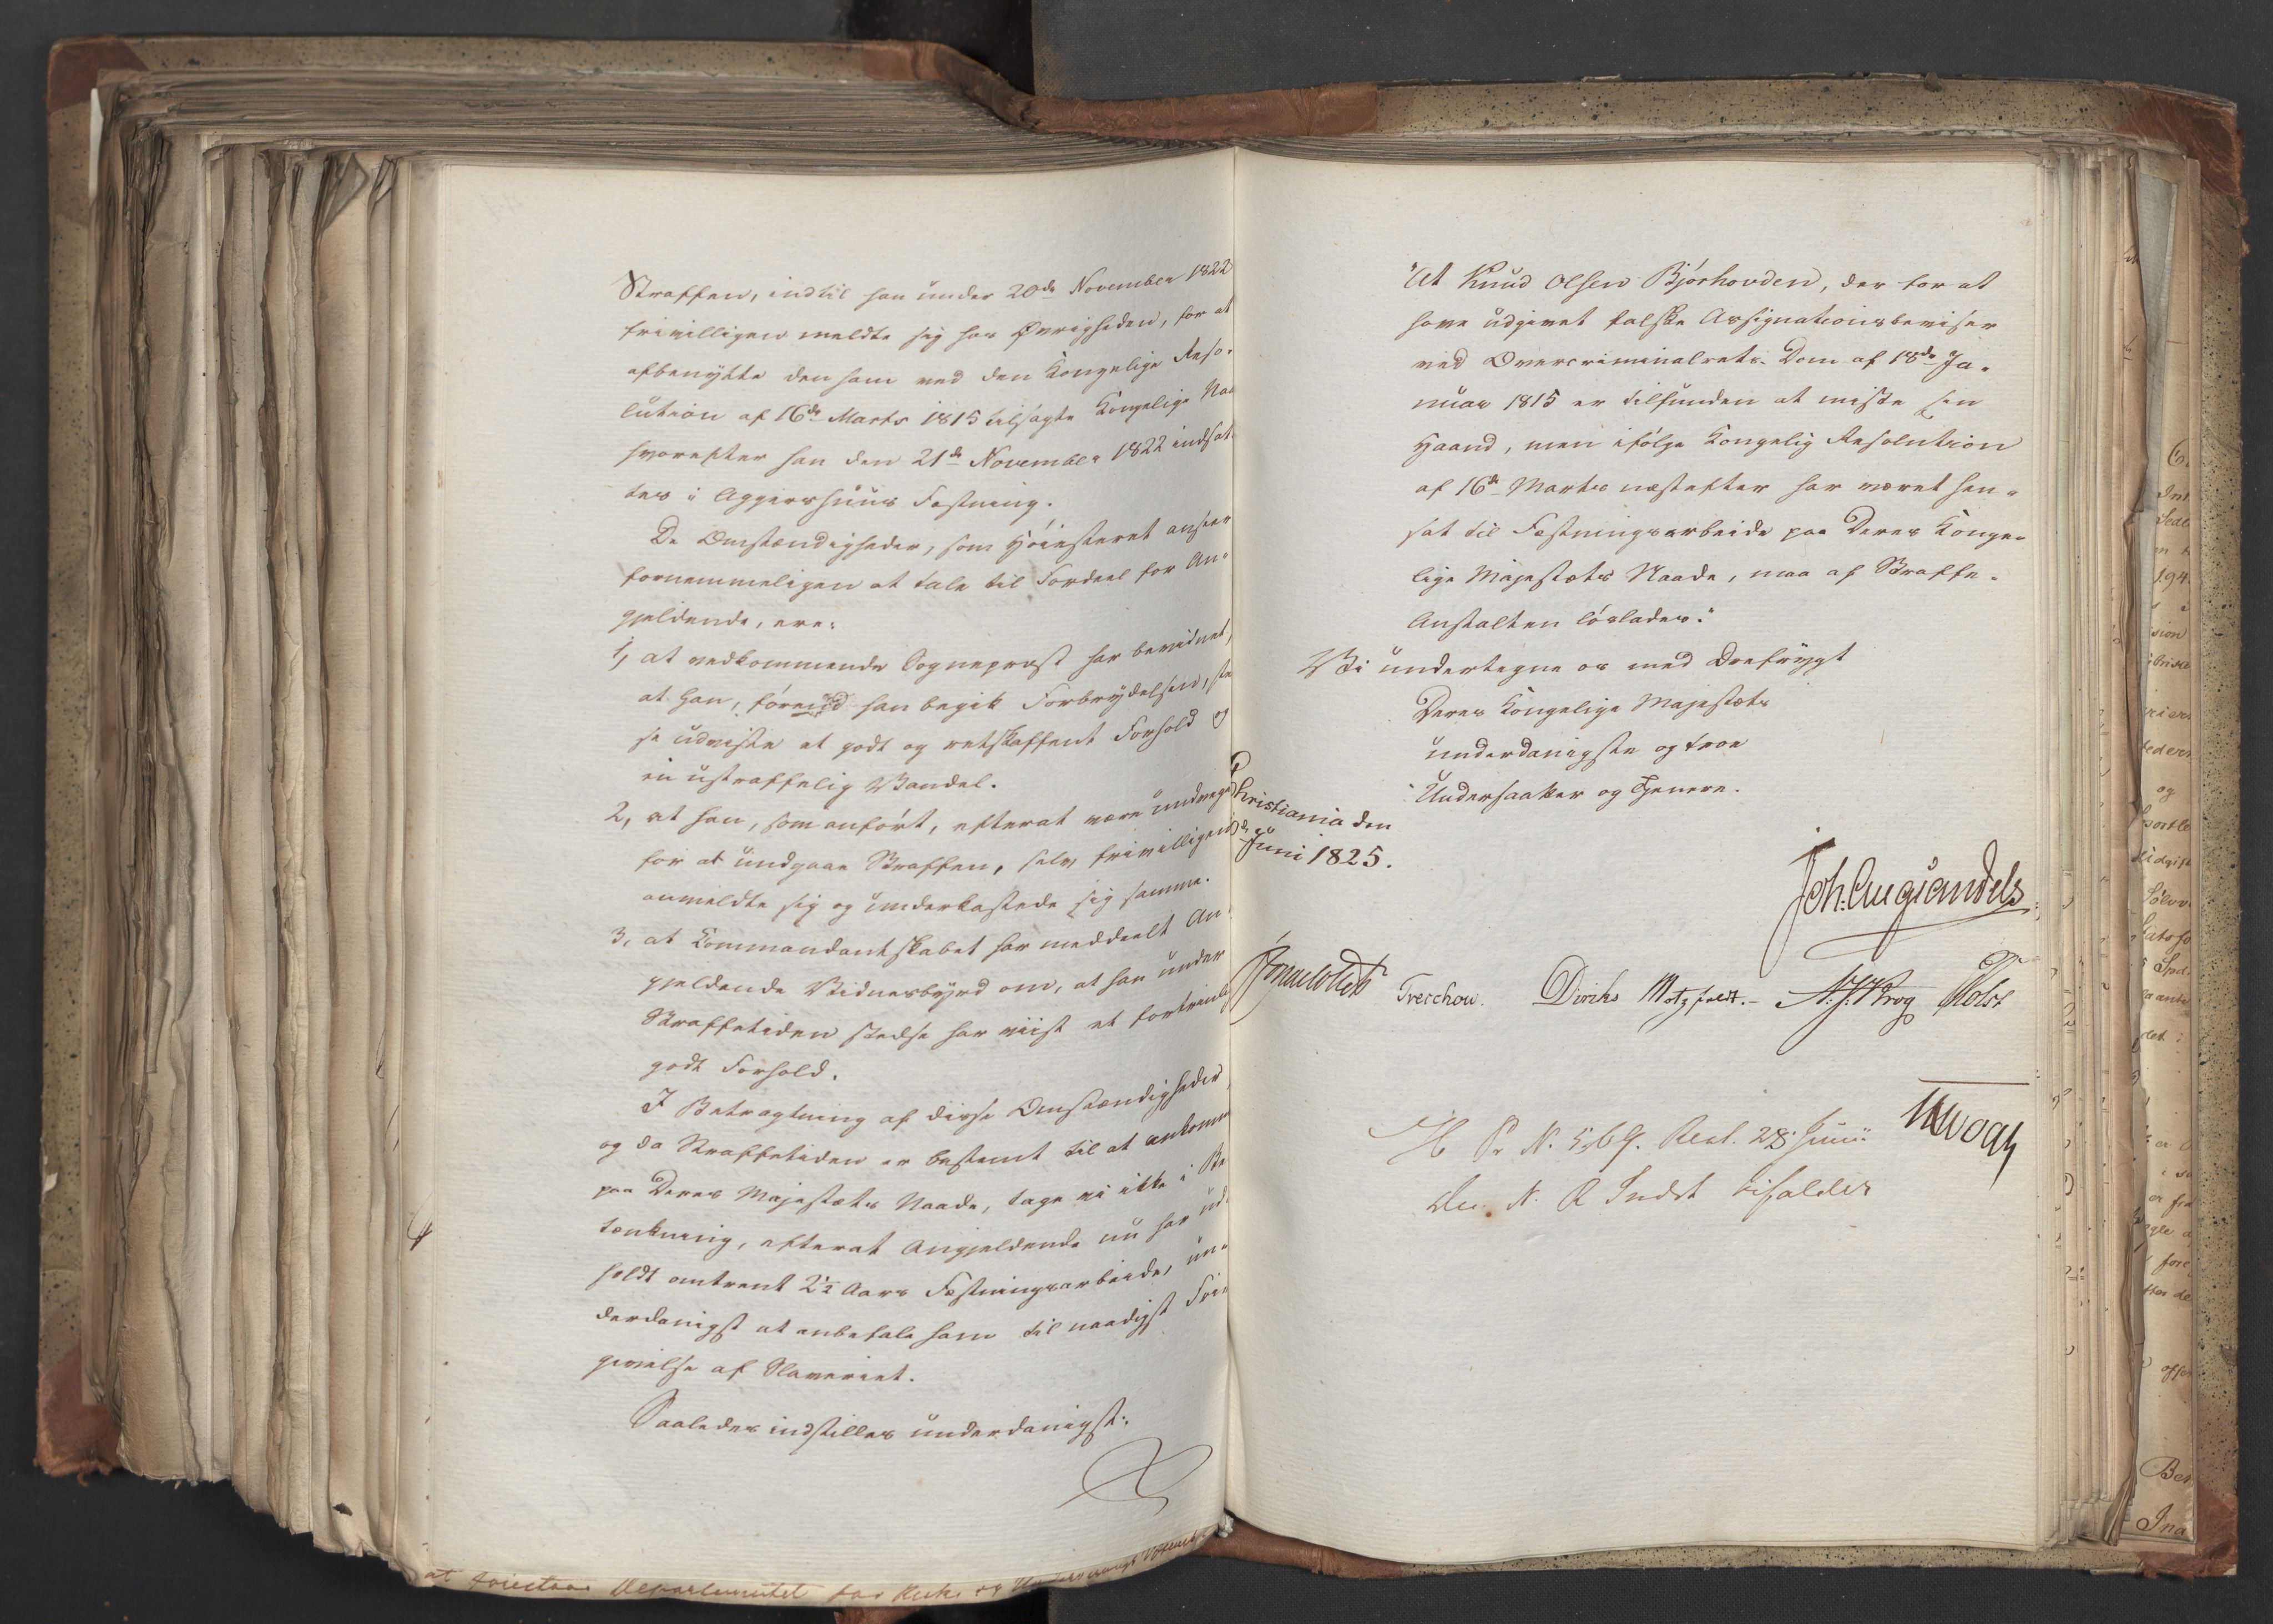 Straffen, indtil han under 20de November 1822
frivilligen meldte sig for Øvrigheden, for at
afbenytte den ham ved den Kongelige Reso-
lution af 16de Marts 1815 tilsagte Kongelige Naa
hvorefter han den 21de November 1822 indsat-
tes i Aggershuus Fæstning.
De Omstændigheder, som Höiesteret anseer
fornemmeligen at tale til Fordeel for An-
gjeldende, ere:
1, at vedkommende Sognepræst har bevidnet,
at han, förend han begik Forbrydelsen, sted
se udviste et godt og retskaffent Forhold og
en ustraffelig Vandel.
2, at han, som anfört, efterat være undveget
for at undgaae Straffen, selv frivilligen
anmeldte sig og underkastede sig samme.
3, at Kommandantskabet har meddeelt An-
gjeldende Vidnesbyrd om, at han under
Straffetiden stedse har viist et fortrinlig
godt Forhold.
I Betragtning af disse Omstændigheder,
og da Straffetiden er bestemt til at ankomme
paa Deres Majestæts Naade, tage vi ikke i Be
tænkning, efterat Angjeldende nu har ud-
holdt omtrent 2½ Aars Fæstningsarbeide, un-
derdanigst at anbefale ham til naadigst Fri-
givelse af Slaveriet.
Saaledes indstilles underdanigst:
at foresten Departementet for Kirke og Underviisnings
"At Knud Olsen Björhovden, der for at
have udgivet falske Assignationsbeviser
ved Overcriminalrets Dom af 18de Ja-
nuar 1815 er tilfunden at miste sin
Haand, men ifölge Kongelig Resolution
af 16de Marts næstefter har været hen-
sat til Fæstningsarbeide paa Deres Konge-
lige Majestæts Naade, maa af Straffe-
Anstalten löslades."
Vi undertegne os med Ærefrygt
Deres Kongelige Majestæts
underdanigste og troe
Undersaatter og Tjenere.
Christiania den
de Juni 1825.
Joh. Aug Sandels
Sommerhielm Treschow. Diriks Motzfeldt. N. J. Krog Holst
JH Vogt
H Pr N. 569. Resol. 28 Junii
Den N. R Indst bifaldes